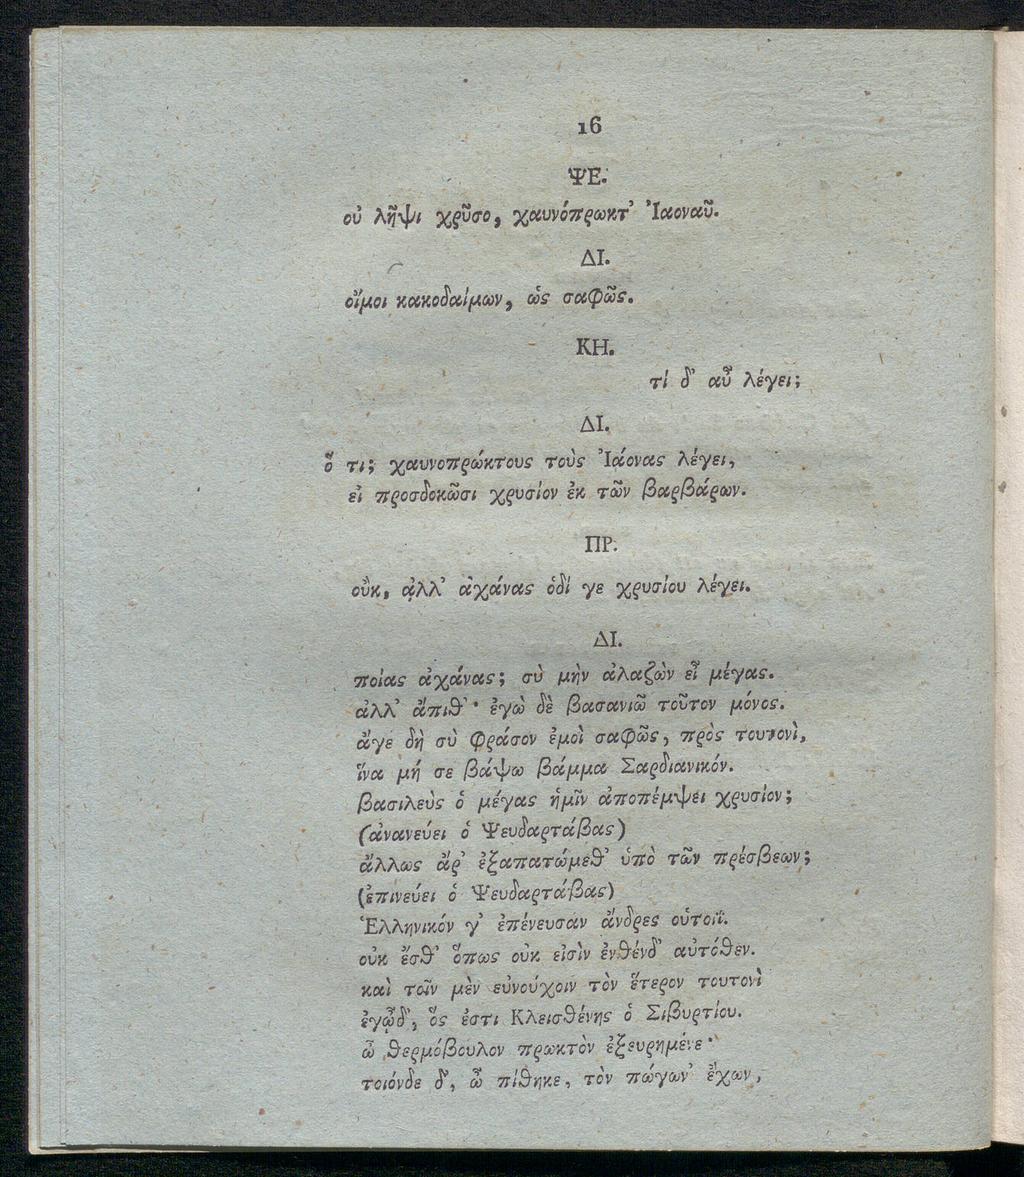 16
ΨΕ.
οὐ λῆψι χρῦσο, χαυνόπρωκτ' Ἰαοναῦ.
ΔΙ.
οἴμοι κακοδαίμων, ὡς σαφῶς.
ΚΗ.
τί δ' αὖ λέγει;
ΔΙ.
ὅ τι; χαυνοπρώκτους τοὺς Ἰάονας λέγει,
εἰ προσδοκῶσι χρυσίον ἐκ τῶν βαρβάρων.
ΠΡ.
οὔκ, ἀλλ' ἀχάνας ὁδί γε χρυσίου λέγει.
ΔΙ.
ποίας ἀχάνας; σὺ μὴν ἀλαζὼν εἶ μέγας.
ἀλλ' ἄπιθ'· ἐγὼ δὲ βασανιῶ τοῦτον μόνος.
ἄγε δὴ σὺ φράσον ἐμοὶ σαφῶς, πρὸς τουτονὶ,
ἵνα μή σε βάψω βάμμα Σαρδιανικόν.
βασιλεὺς ὁ μέγας ἡμῖν ἀποπέμψει χρυσίον;
(ἀνανεύει ὁ Ψευδαρτάβας)
ἄλλως ἄρ' ἐξαπατώμεθ' ὑπὸ τῶν πρέσβεων;
(ἐπινεύει ὁ Ψευδαρτάβας)
Ἑλληνικόν γ' ἐπένευσαν ἄνδρες οὑτοιΐ.
οὐκ ἔσθ' ὅπως οὐκ εἰσὶν ἐνθένδ' αὐτόθεν.
καὶ τοῖν μὲν εὐνούχοιν τὸν ἕτερον τουτονὶ
ἐγᾦδ', ὅς ἐστι Κλεισθένης ὁ Σιβυρτίου.
ὦ θερμόβουλον πρωκτὸν ἐξευρημένε·
τοιόνδε δ', ὦ πίθηκε, τὸν πώγων' ἔχων,